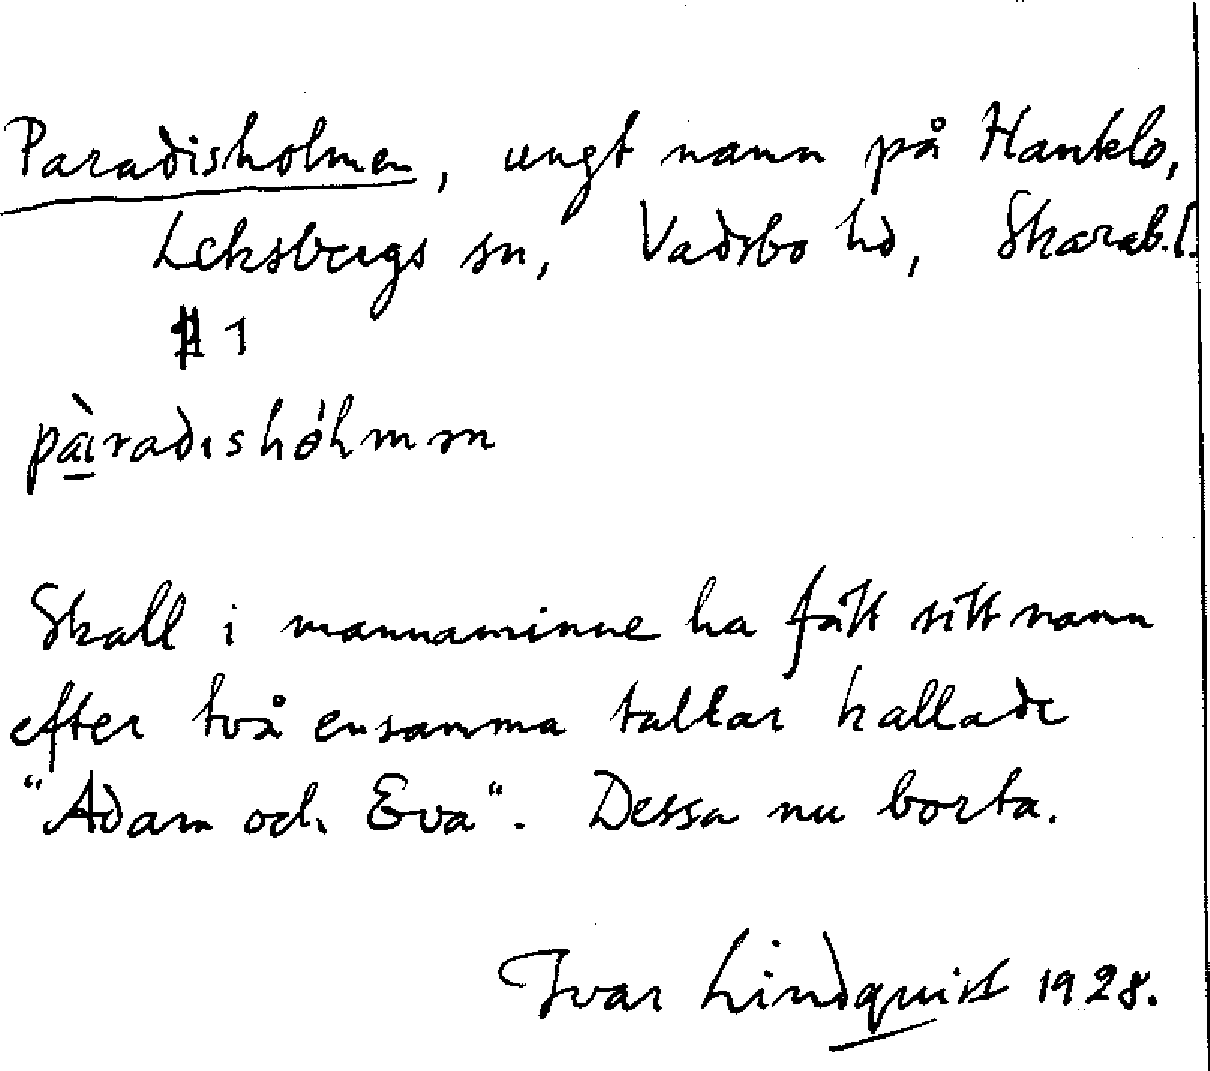 Paradisholmen, ungt namn på Hanklo,
Leksbergs sn, Vadsbo hd, Skarab.l.
1
pàradıshólmən
Skall i mannaminne ha fått sitt namn
efter två ensamma tallar kallade
"Adam och Eva". Dessa nu borta.
Ivar Lindquist 1928.